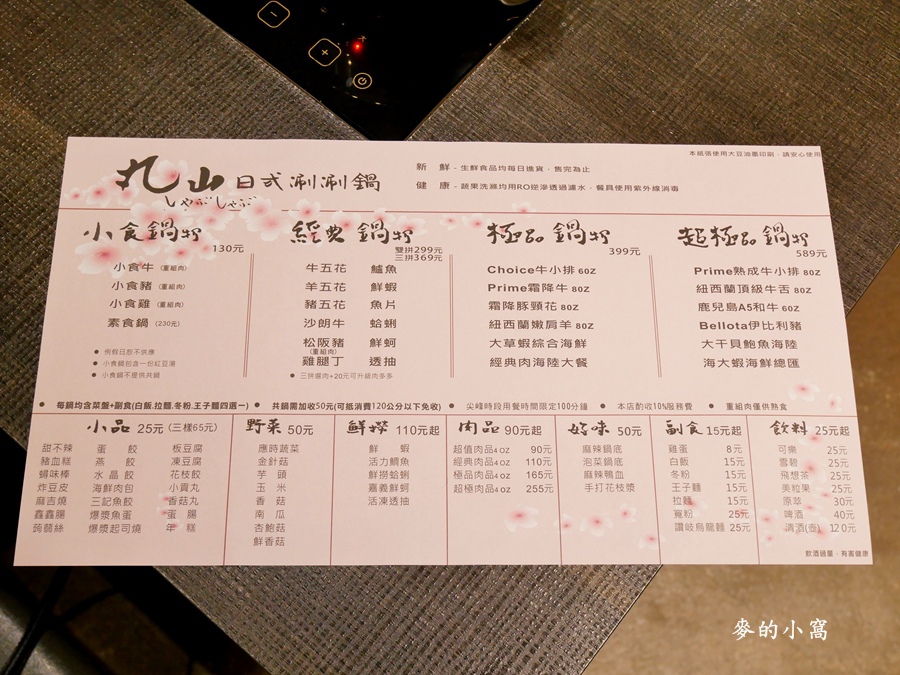 本紙張使用大豆油墨印刷，請安心使用
丸山日式涮涮鍋
しゃぶしゃぶ
新 鮮 - 生鮮食品均每日進貨，售完為止
健 康 - 蔬果洗滌均用RO逆滲透過濾水、餐具使用紫外線消毒
小食鍋物
130元
小食牛 (重組肉)
小食豬 (重組肉)
小食雞 (重組肉)
素食鍋 (230元)
● 例假日恕不供應
● 小食鍋包含一份紅豆湯
● 小食鍋不提供共鍋
經典鍋物
雙拼299元
三拼369元
牛五花 鱸魚
羊五花 鮮蝦
豬五花 魚片
沙朗牛 蛤蜊
松阪豬 鮮蚵
(重組肉)
雞腿丁 透抽
● 三拼選肉+20元可升級肉多多
極品鍋物
399元
Choice牛小排 6OZ
Prime霜降牛 8OZ
霜降豚頸花 8OZ
紐西蘭嫩肩羊 8OZ
大草蝦綜合海鮮
經典肉海陸大餐
超極品鍋物
589元
Prime熟成牛小排 8OZ
紐西蘭頂級牛舌 8OZ
鹿兒島A5和牛 6OZ
Bellota伊比利豬
大干貝鮑魚海陸
海大蝦海鮮總匯
● 每鍋均含菜盤+副食(白飯.拉麵.冬粉.王子麵四選一) ● 共鍋需加收50元(可抵消費120公分以下免收) ● 尖峰時段用餐時間限定100分鐘 ● 本店酌收10%服務費 ● 重組肉僅供熟食
小品 25元 (三樣65元)
甜不辣 蛋餃 板豆腐
豬血糕 燕餃 凍豆腐
蟳味棒 水晶餃 花枝餃
炸豆皮 海鮮肉包 小貢丸
麻吉燒 三記魚餃 香菇丸
鑫鑫腸 爆漿魚蛋 蛋腸
蒟蒻絲 爆漿起司燒 年糕
野菜 50元
應時蔬菜
金針菇
芋頭
玉米
香菇
南瓜
杏鮑菇
鮮香菇
鮮撈 110元起
鮮蝦
活力鯛魚
鮮撈蛤蜊
嘉義鮮蚵
活凍透抽
肉品 90元起
超值肉品4OZ 90元
經典肉品4OZ 110元
極品肉品4OZ 165元
超極肉品4OZ 255元
好味 50元
麻辣鍋底
泡菜鍋底
麻辣鴨血
手打花枝漿
副食 15元起
雞蛋 8元
白飯 15元
冬粉 15元
王子麵 15元
拉麵 15元
寬粉 25元
讚岐烏龍麵 25元
飲料 25元起
可樂 25元
雪碧 25元
飛想茶 25元
美粒果 25元
原萃 30元
啤酒 40元
清酒(壺) 120元
飲酒過量，有害健康
麥的小窩